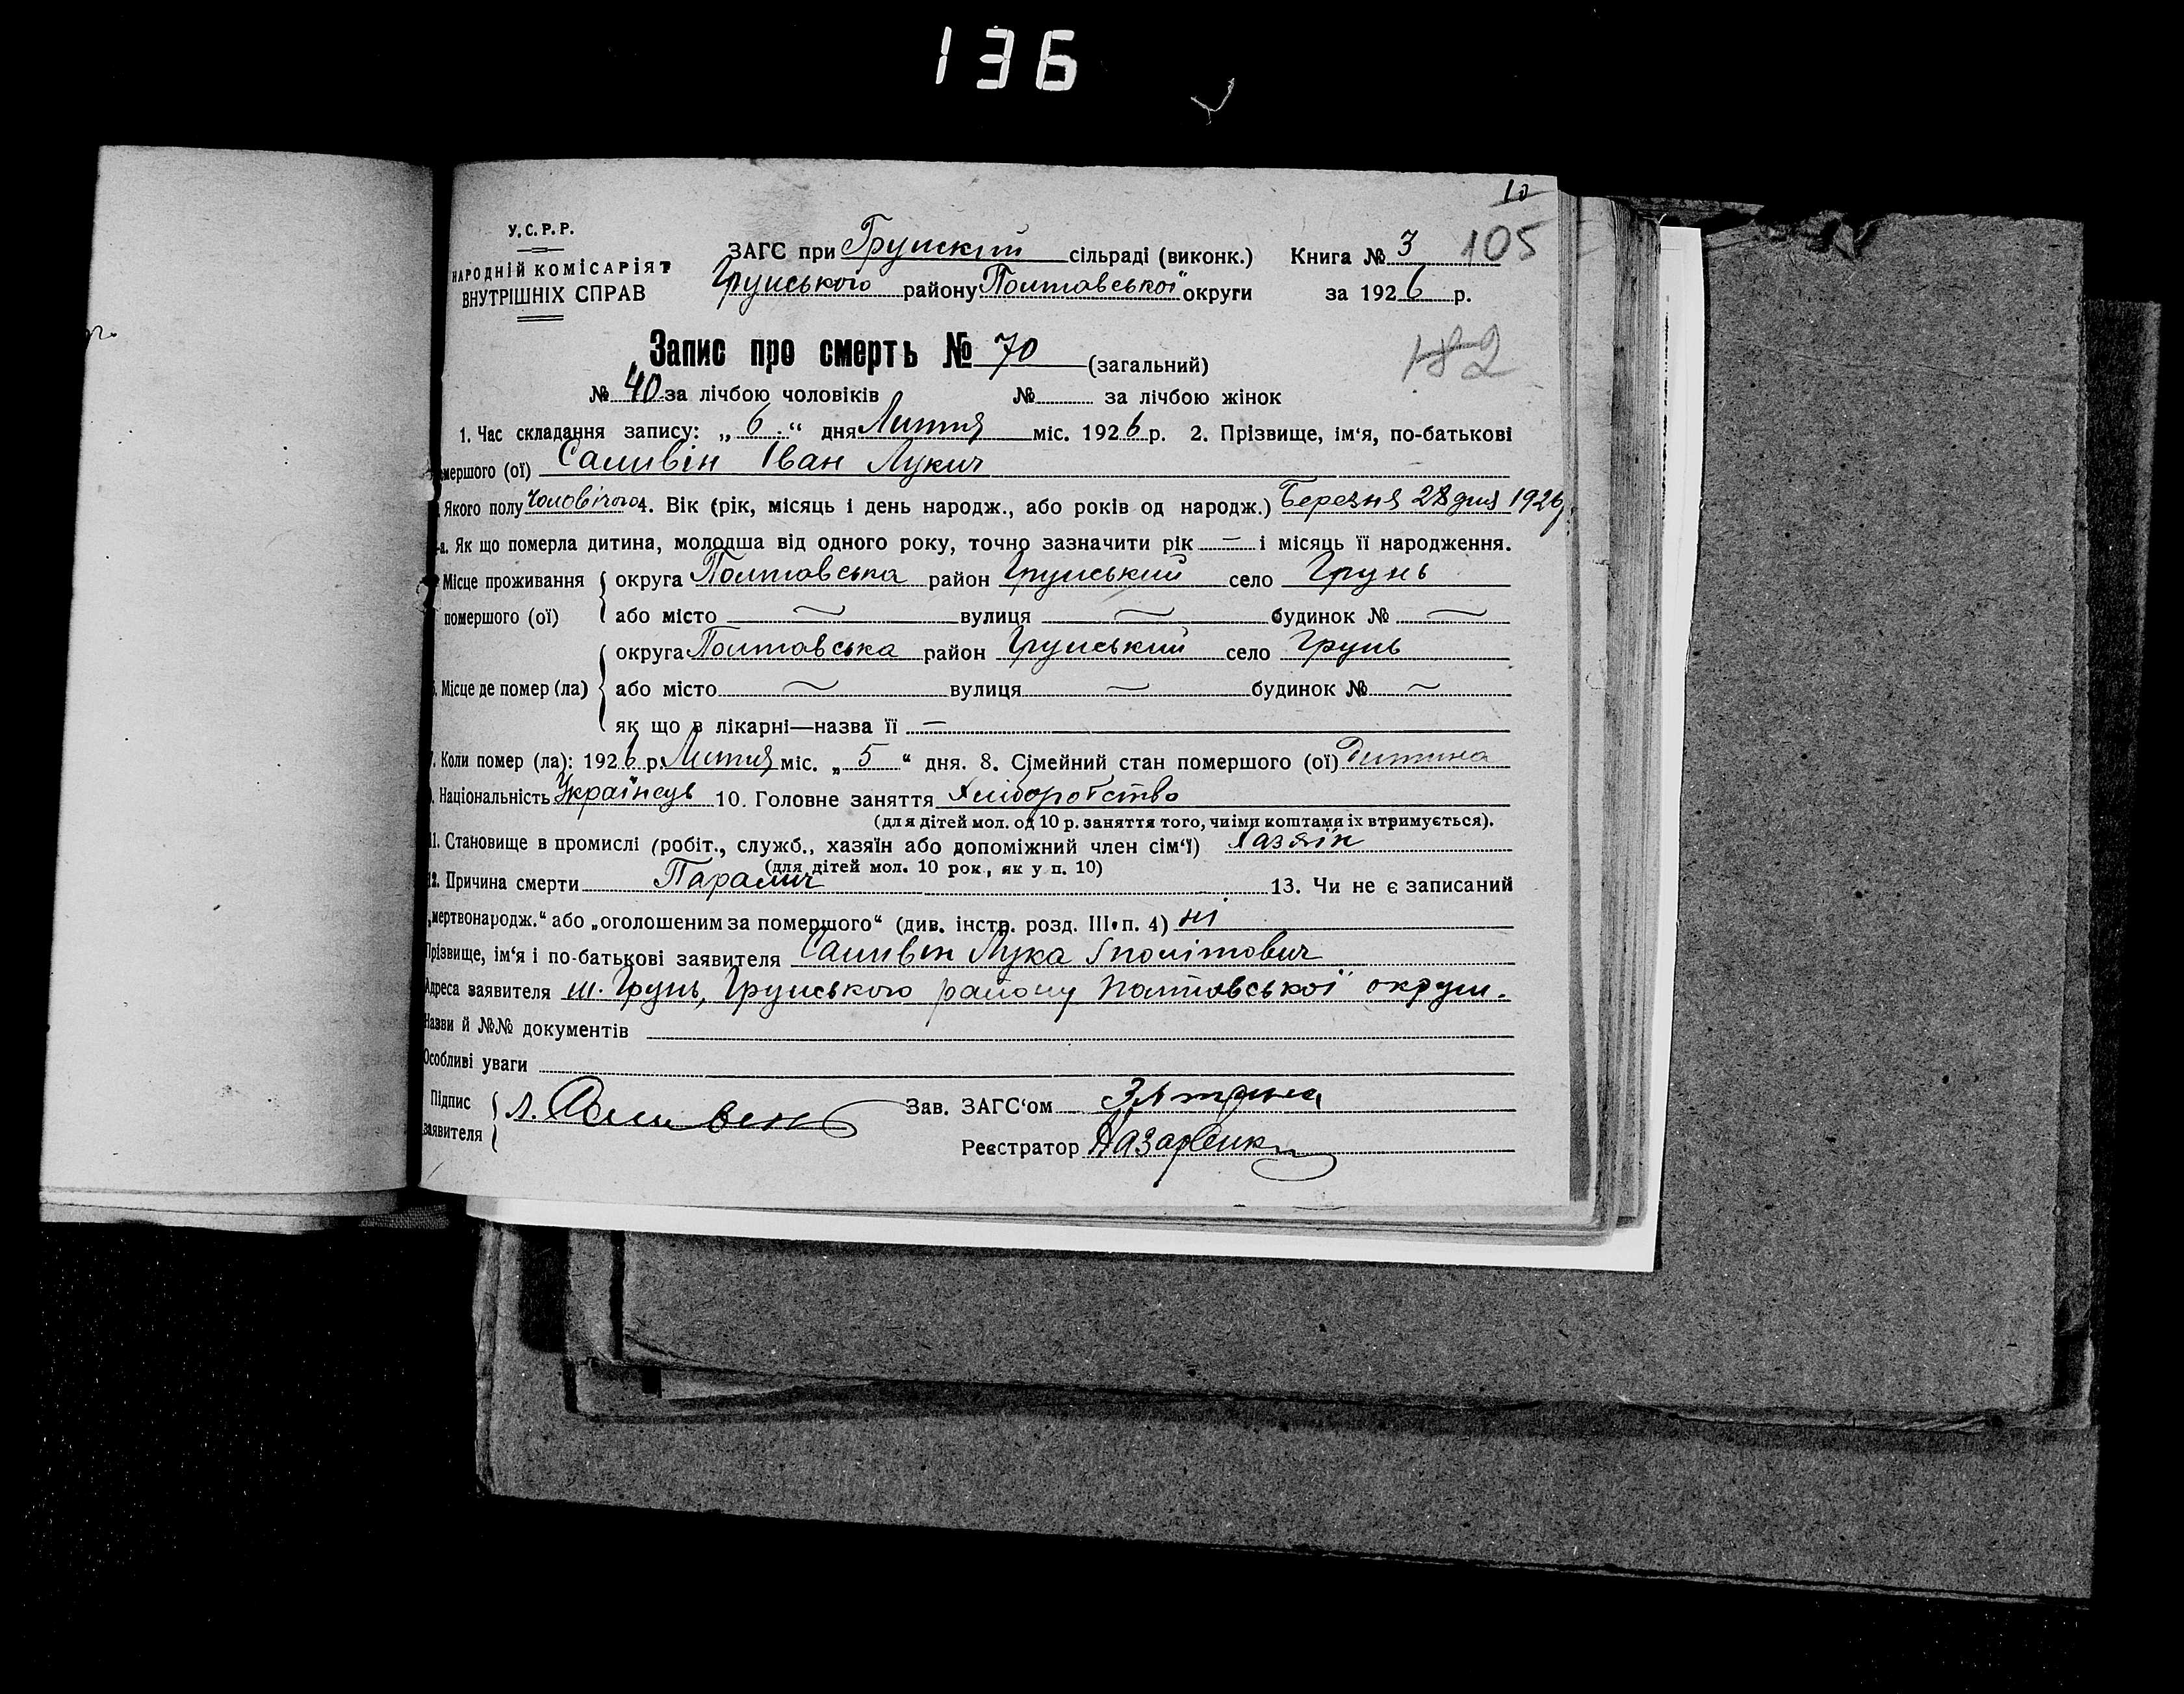 136
10
У.С.Р.Р.
НАРОДНІЙ КОМІСАРІЯТ
ВНУТРІШНІХ СПРАВ
ЗАГС при Грунській сільраді (виконк.) Книга № 3 105
Грунського району Полтавської округи за 1926 р.
Запис про смерть № 70 (загальний)
182
№ 40 за лічбою чоловіків № за лічбою жінок
1. Час складання запису: „6“ дня Липня міс. 1926 р. 2. Прізвище, ім‘я, по-батькові
мершого (ої) Саливін Іван Лукич
Якого полу Чоловічого 4. Вік (рік, місяць і день народж., або років од народж.) Березня 28 дня 1926 р.
а. Як що померла дитина, молодша від одного року, точно зазначити рік — і місяць її народження.
Місце проживання округа Полтавська район Грунський село Грунь
помершого (ої) або місто — вулиця — будинок № —
округа Полтавська район Грунський село Грунь
Місце де помер (ла) або місто — вулиця — будинок № —
як що в лікарні—назва її —
7. Коли помер (ла): 1926 р. Липня міс. „5“ дня. 8. Сімейний стан помершого (ої) Дитина
Національність Українець 10. Головне заняття Хліборобство
(для дітей мол. од 10 р. заняття того, чиїми коштами їх втримується).
11. Становище в промислі (робіт., служб., хазяїн або допоміжний член сім‘ї) Хазяїн
(для дітей мол. 10 рок, як у п. 10)
12. Причина смерти Параліч 13. Чи не є записаний
„мертвонародж.“ або „оголошеним за помершого“ (див. інстр. розд. III п. 4) ні
Прізвище, ім‘я і по-батькові заявителя Саливін Лука Іполітович
Адреса заявителя м. Грунь, Грунського району Полтавської округи.
Назви й №№ документів
Особливі уваги
Підпис
заявителя Л. Саливен Зав. ЗАГС‘ом
Реєстратор Назаренко